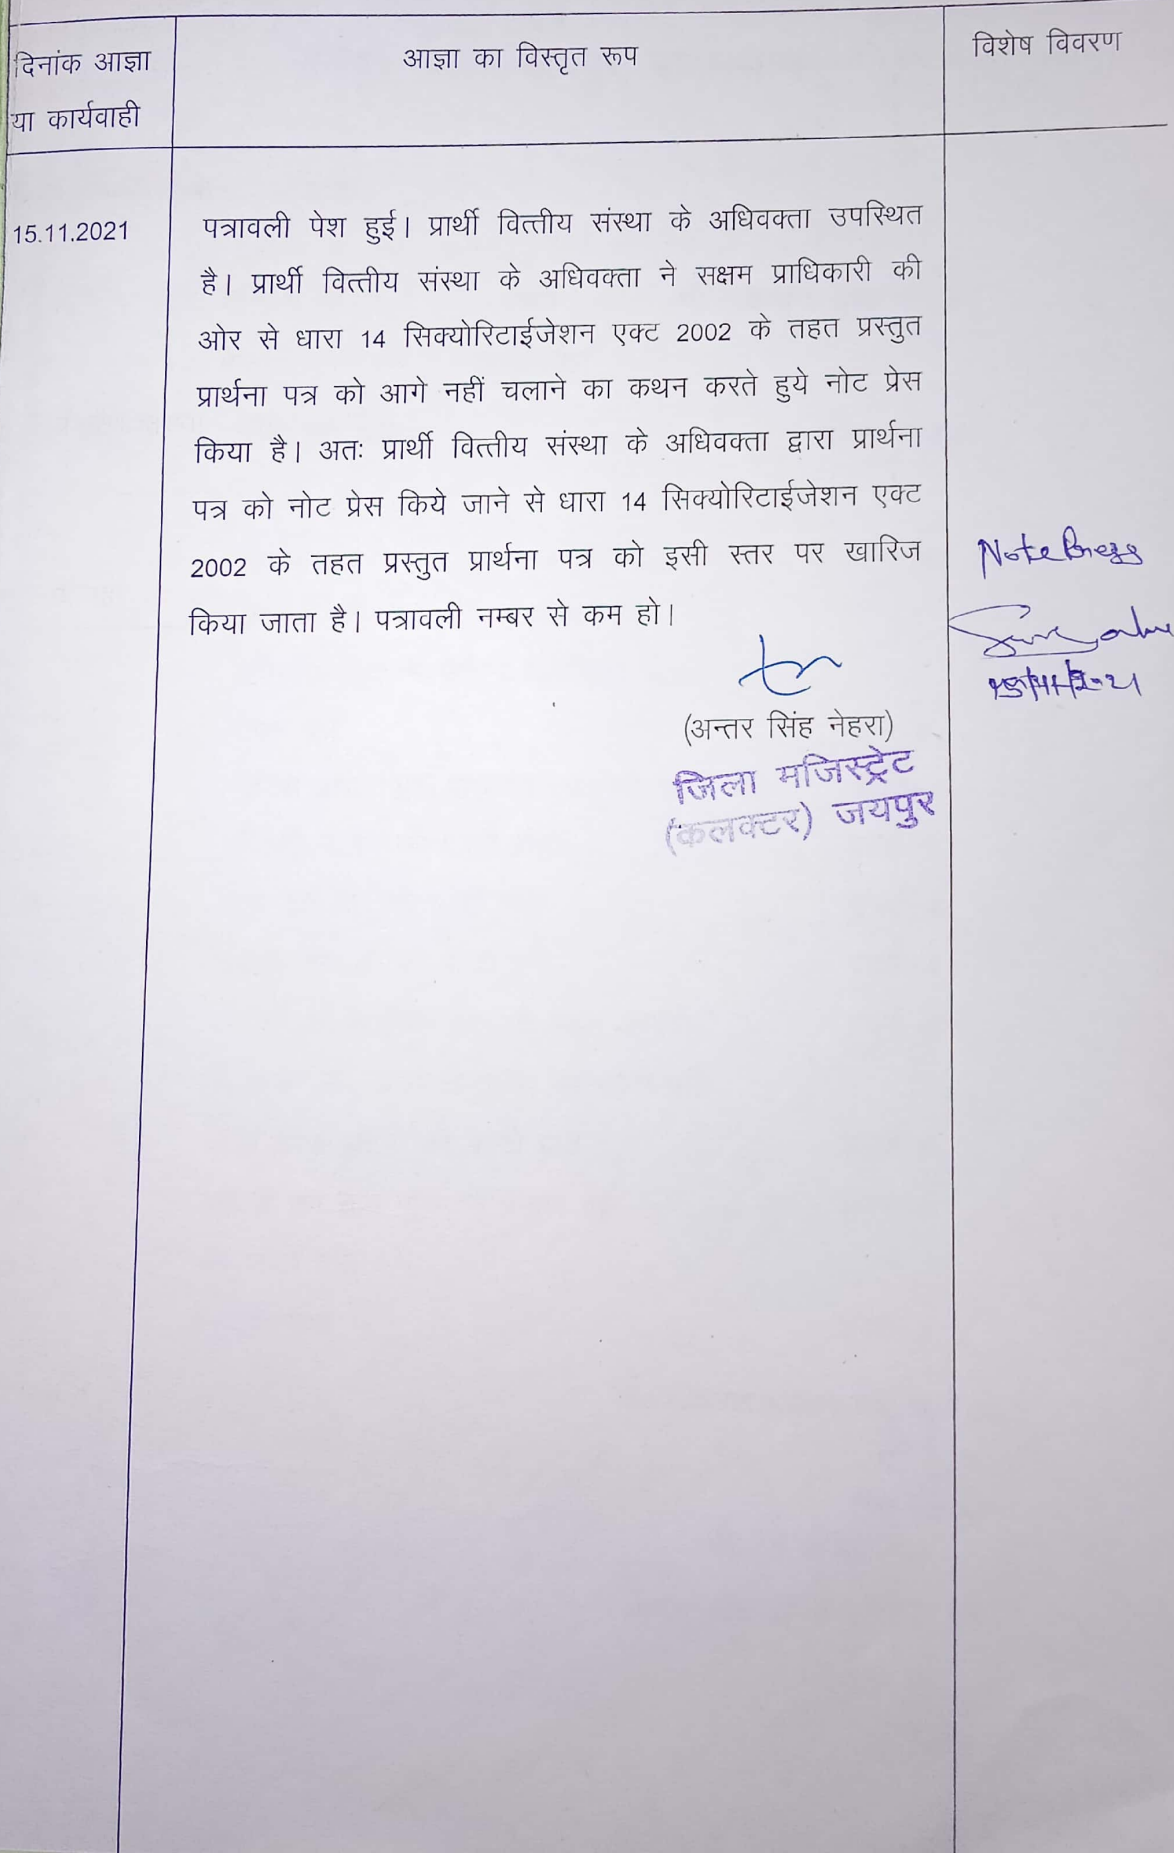 दिनांक आज्ञा
या कार्यवाही
आज्ञा का विस्तृत रूप
विशेष विवरण
15.11.2021
पत्रावली पेश हुई। प्रार्थी वित्तीय संस्था के अधिवक्ता उपस्थित
है। प्रार्थी वित्तीय संस्था के अधिवक्ता ने सक्षम प्राधिकारी की
ओर से धारा 14 सिक्योरिटाईजेशन एक्ट 2002 के तहत प्रस्तुत
प्रार्थना पत्र को आगे नहीं चलाने का कथन करते हुये नोट प्रेस
किया है। अतः प्रार्थी वित्तीय संस्था के अधिवक्ता द्वारा प्रार्थना
पत्र को नोट प्रेस किये जाने से धारा 14 सिक्योरिटाईजेशन एक्ट
2002 के तहत प्रस्तुत प्रार्थना पत्र को इसी स्तर पर खारिज
किया जाता है। पत्रावली नम्बर से कम हो।
(अन्तर सिंह नेहरा)
जिला मजिस्ट्रेट
(कलक्टर) जयपुर
Note Press